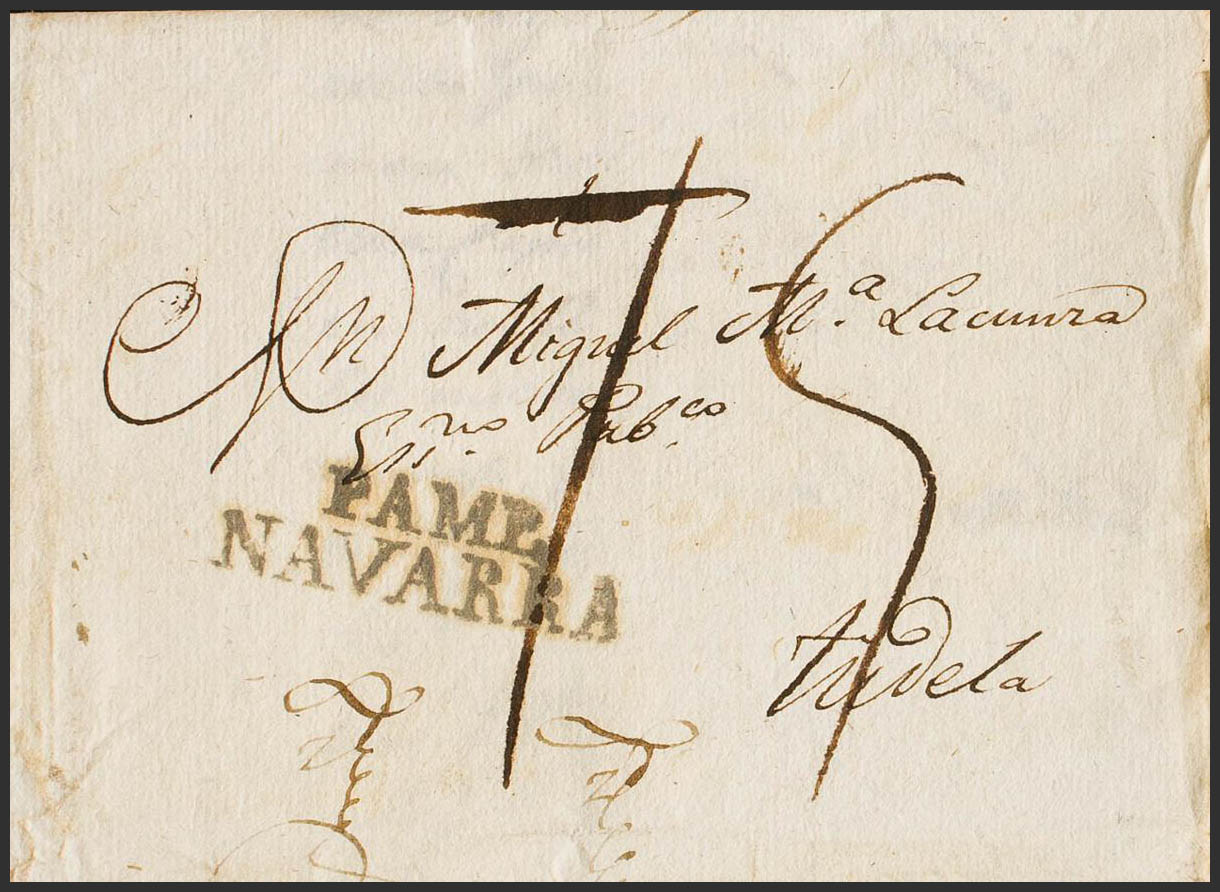 Dn Miguel Ma. Lacunza
Essno. Pubco.
75
PAMP.
NAVARRA
tudela